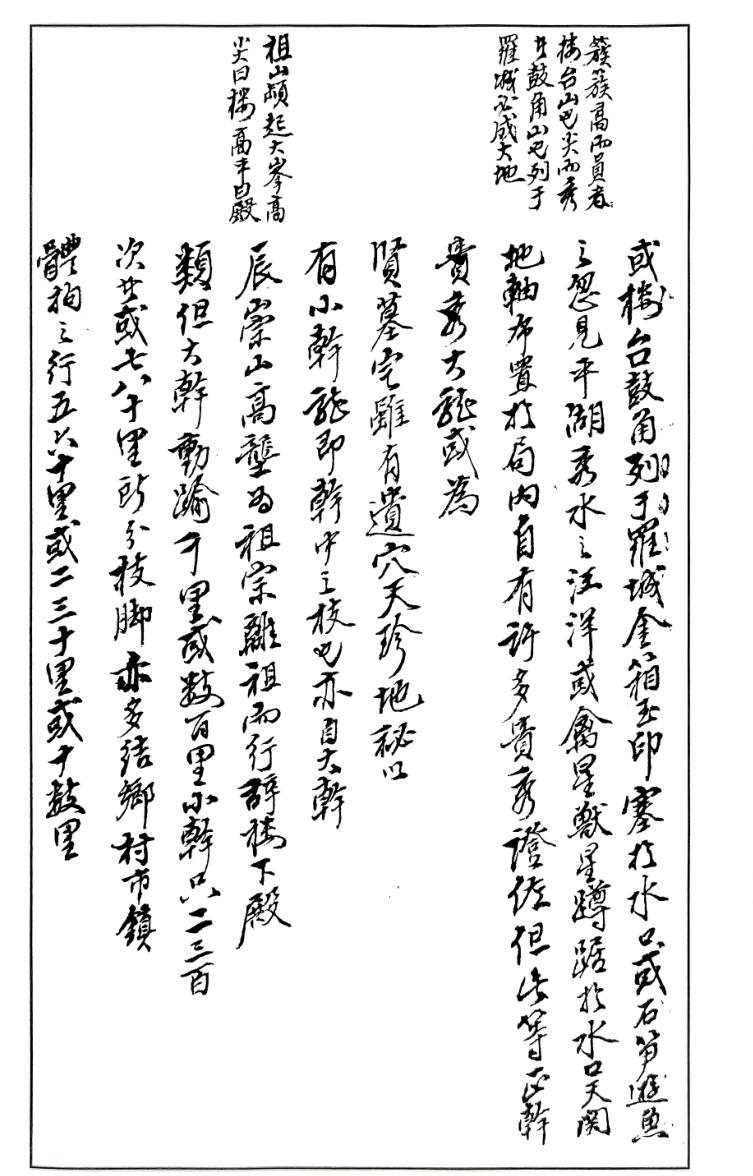 簇簇高而員者
樓台山也尖而秀
者鼓角山也列于
羅城必成大地
或樓台鼓角列于羅城金箱玉印塞於水口或石笋遊魚
之忽見平湖秀水之汪洋或禽星獸星蹲踞於水口天関
地軸布置於局内自有許多貴秀證佐但此等正幹
貴秀大龍或為
賢墓宅雖有遺穴天珍地秘以
祖山頓起大峯高
尖曰樓高平曰殿
有小幹龍即幹中之枝也亦自大幹
辰崇山高壟為祖宗離祖而行辞樓下殿
類但大幹動踰千里或数百里小幹只二三百
次廿或七八十里所分枝脚亦多結鄉村市鎮
體狗之行五六十里或二三十里或十数里